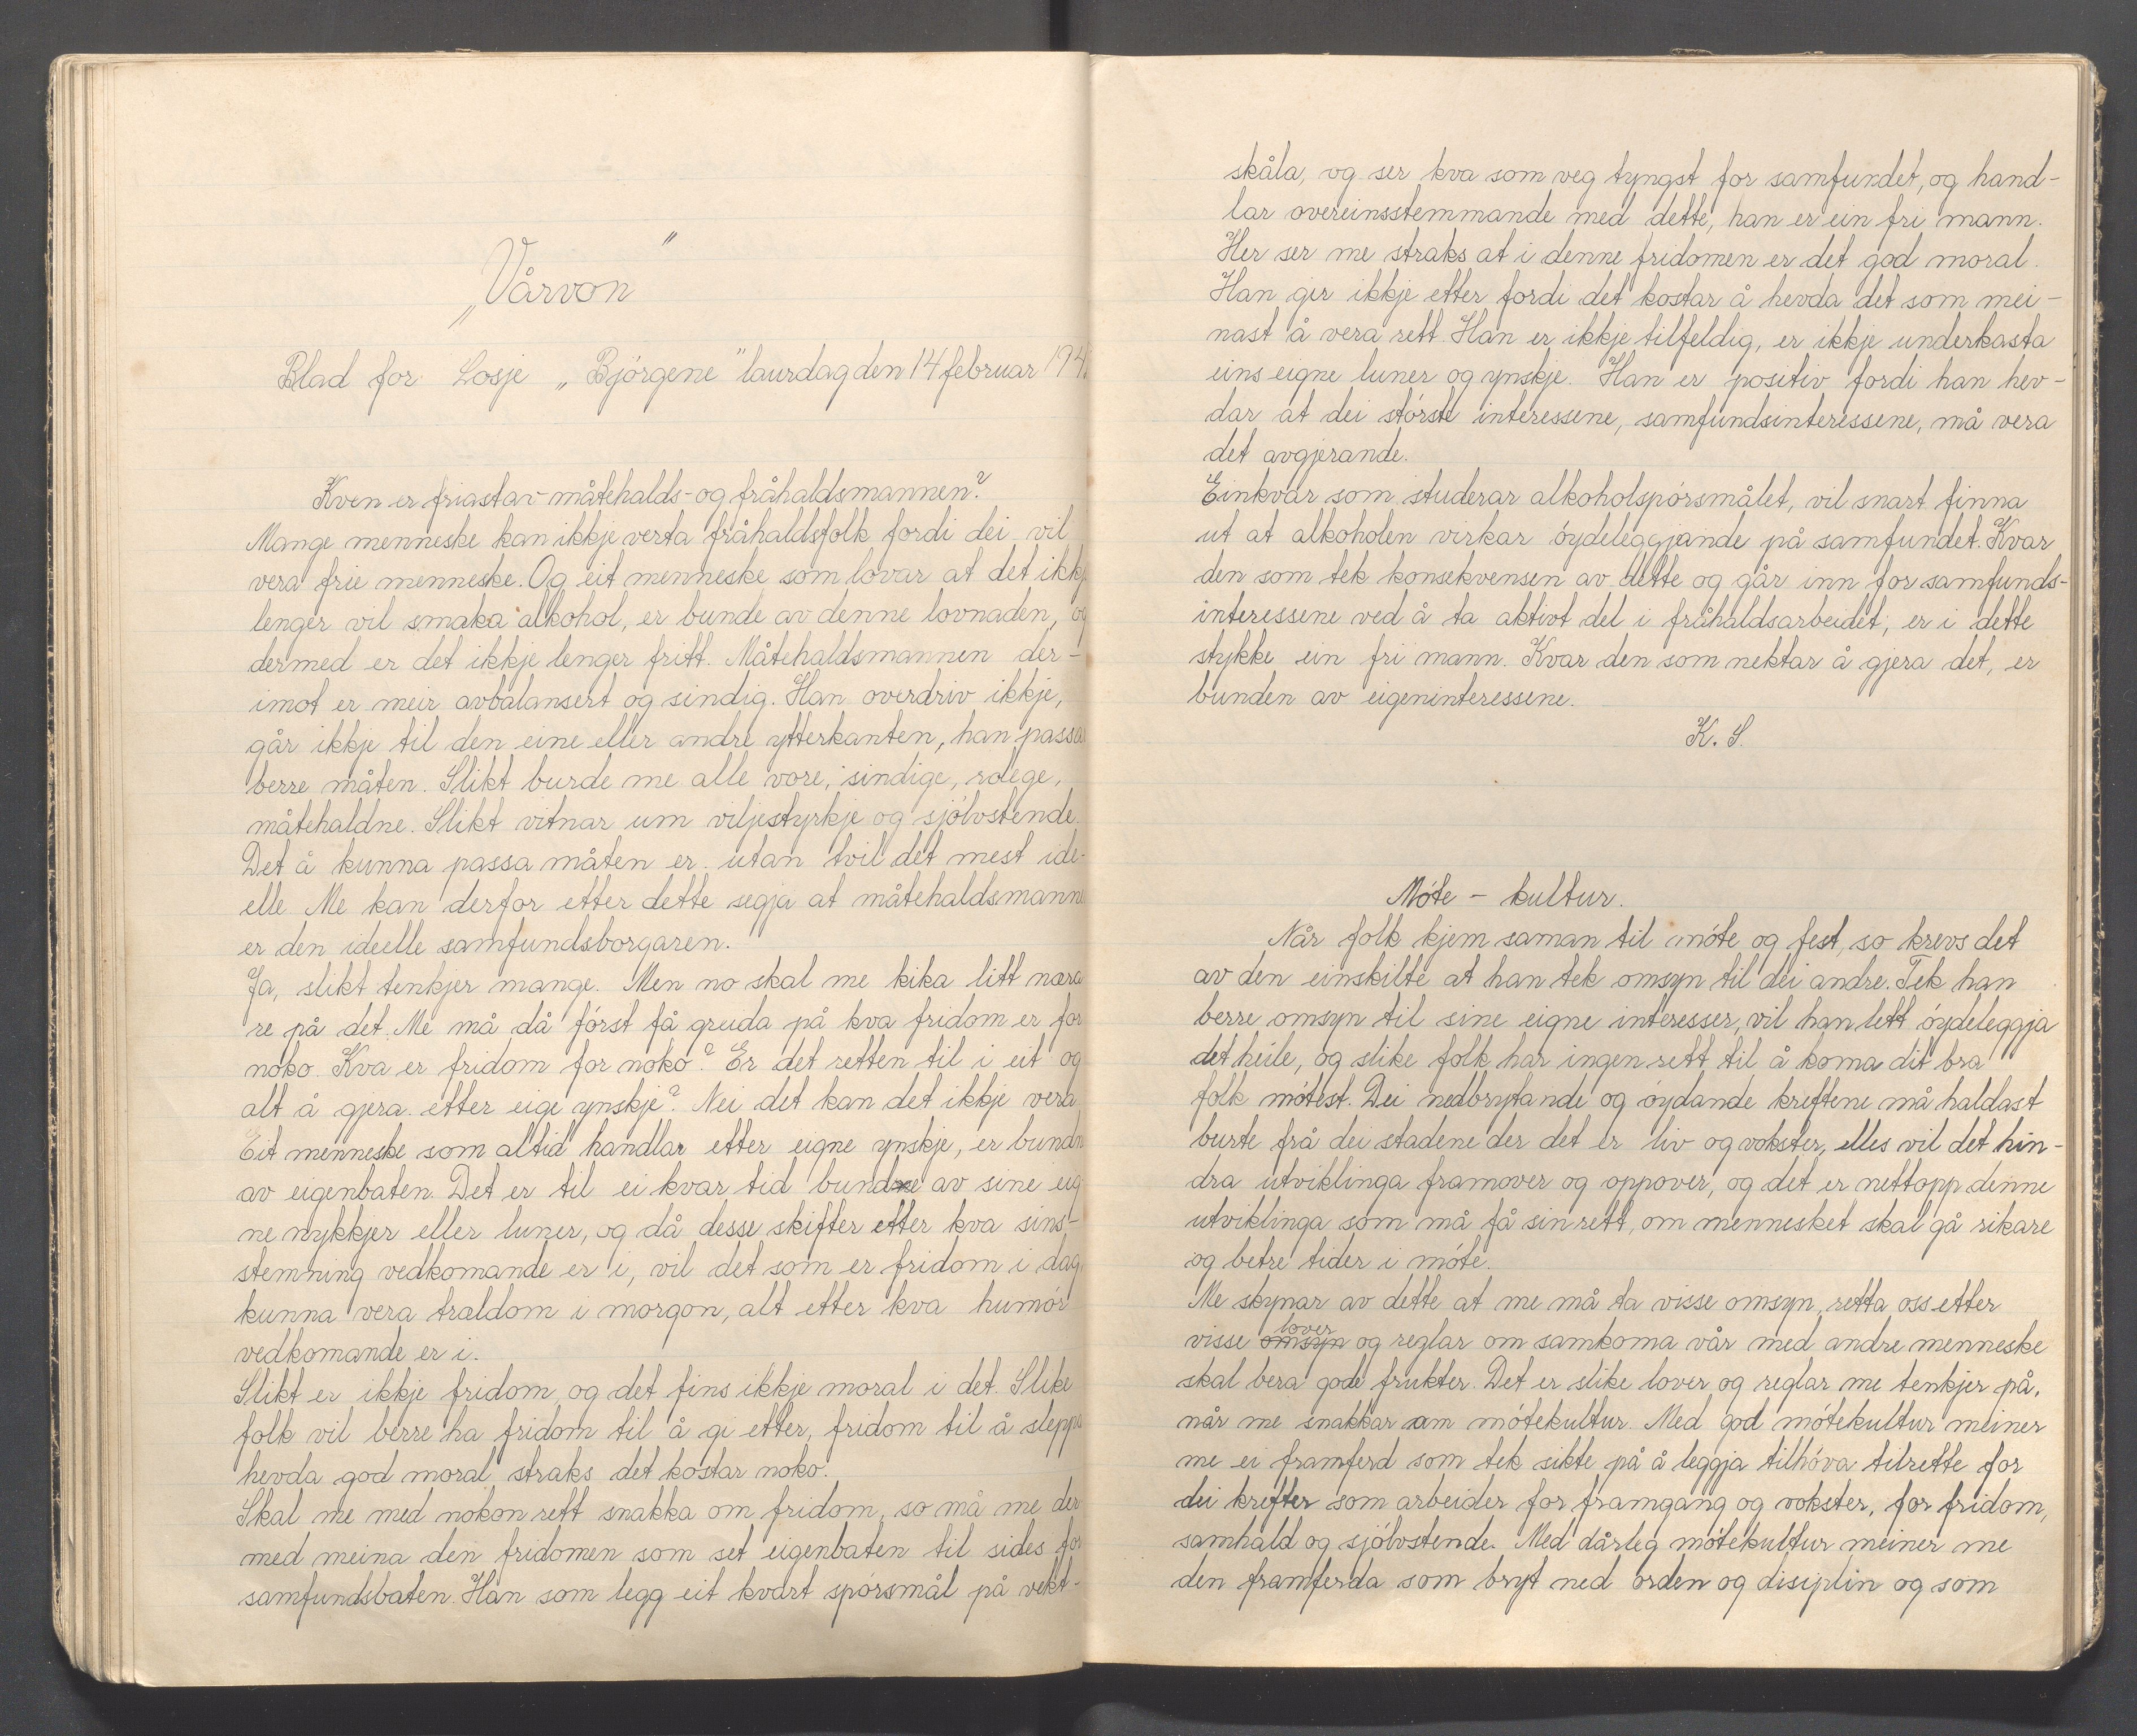 „Vårvon"
Blad for Losje „Bjórgene" laurdag den 14 februar 194
Kven er friast av måtehalds- og fråhaldsmannen?
Mange menneske kan ikkje verta fråhaldsfolk fordi dei vil
vera frie menneske. Og eit menneske som lovar at det ikkj
lenger vil smaka alkohol, er bunde av denne lovnaden, og
dermed er det ikkje lenger fritt. Måtehaldsmannen der-
imot er meir avbalansert og sindig. Han overdriv ikkje,
går ikkje til den eine eller andre ytterkanten, han passa
berre måten. Slikt burde me alle vore, sindige, rolege,
måtehaldne. Slikt vitnar um viljestyrkje og sjólvstende.
Det å kunna passa måten er utan tvil det mest ide-
elle. Me kan derfor etter dette segja at måtehaldsmanne
er den ideelle samfundsborgaren.
Ja, slikt tenkjer mange. Men no skal me kika litt næra
re på det. Me må då fórst få greida på kva fridom er for
noko. Kva er fridom for noko? Er det retten til i eit og
alt å gjera etter eige ynskje? Nei det kan det ikkje vera.
Eit menneske som altid handlar etter eigne ynskje, er bunde
av eigenbaten. Det er til ei kvar tid bunde av sine eig
ne nykkjer eller luner, og då desse skifter etter kva sins-
stemning vedkomande er i, vil det som er fridom i dag,
kunna vera traldom i morgon, alt etter kva humór
vedkomande er i.
Slikt er ikkje fridom, og det fins ikkje moral i det. Slike
folk vil berre ha fridom til å gi etter, fridom til å sleppa
hevda god moral straks det kostar noko.
Skal me med nokon rett snakka om fridom, so må me der
med meina den fridomen som set eigenbaten til sides for
samfundsbaten. Han som legg eit kvart spórsmål på vekt-
skåla, og ser kva som veg tyngst for samfundet, og hand-
lar overeinsstemmande med dette, han er ein fri mann.
Her ser me straks at i denne fridomen er det god moral.
Han gir ikkje etter fordi det kostar å hevda det som mei-
nast å vera rett. Han er ikkje tilfeldig, er ikkje underkasta
eins eigne luner og ynskje. Han er positiv fordi han hev-
dar at dei stórste interessene, samfundsinteressene, må vera
det avgjerande.
Einkvar som studerar alkoholspórsmålet, vil snart finna
ut at alkoholen virkar óydeleggjande på samfundet. Kvar
den som tek konsekvensen av dette og går inn for samfunds-
interessene ved å ta aktivt del i fråhaldsarbeidet, er i dette
stykke ein fri mann. Kvar den som nektar å gjera det, er
bunden av eigeninteressene.
K. S.
Móte - kultur.
Når folk kjem saman til móte og fest, so krevs det
av den einskilte at han tek omsyn til dei andre. Tek han
berre omsyn til sine eigne interesser, vil han lett óydeleggja
det heile, og slike folk har ingen rett til å koma dit bra
folk mótest. Dei nedbrytande og óydande kreftene må haldast
burte frå dei stadene der det er liv og vokster, elles vil det hin-
dra utviklinga framover og oppover, og det er nettopp denne
utviklinga som må få sin rett, om mennesket skal gå rikare
og betre tider i móte.
Me skjnar av dette at me må ta visse omsyn, retta oss etter
visse omsyn lover og reglar om samkoma vår med andre menneske
skal bera gode frukter. Det er slike lover og reglar me tenkjer på,
når me snakkar om mótekultur. Med god mótekultur meiner
me ei framferd som tek sikte på å leggja tilhóva tilrette for
dei krefter som arbeider for framgang og vokster, for fridom,
samhald og sjólvstende. Med dårleg mótekultur meiner me
den framferda som bryt ned orden og disiplin og som